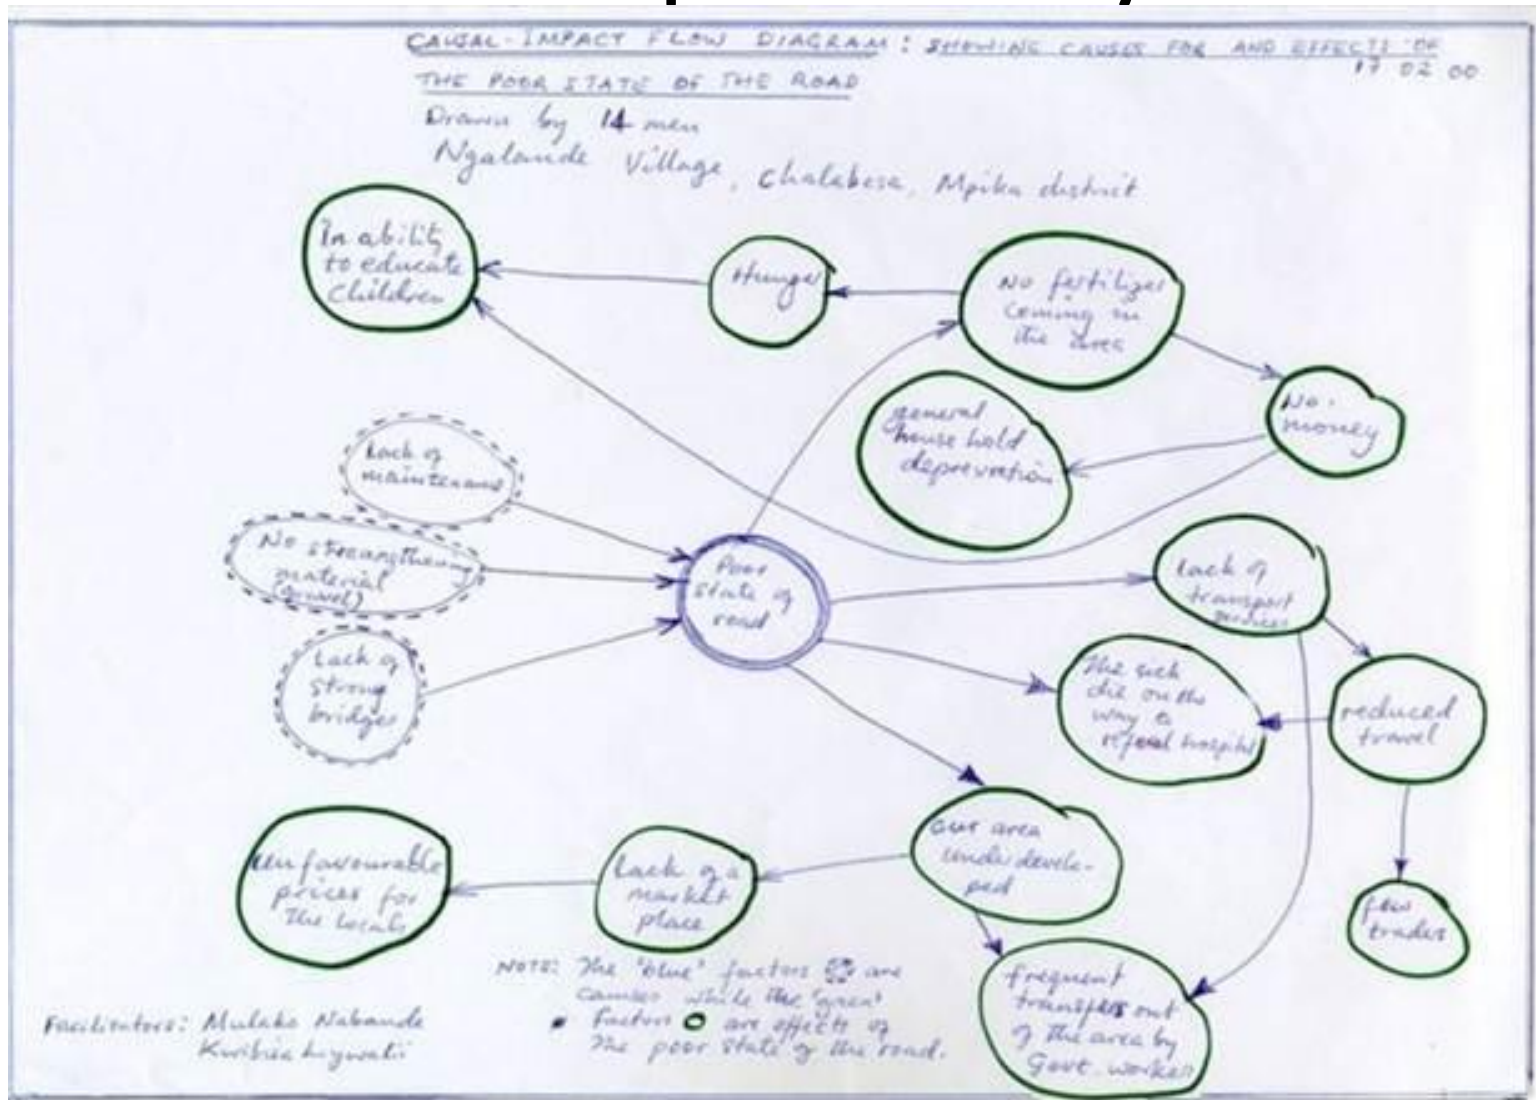 CAUSAL-IMPACT FLOW DIAGRAM: SHOWING CAUSES FOR AND EFFECTS OF
THE POOR STATE OF THE ROAD
17 02 00
Drawn by 14 men
Ngalande Village, Chalabesa, Mpika district
In ability
to educate
children
Hunger
No fertilizer
coming in
the area
No
money
general
house hold
Lack of
maintenance
No
material
(gravel)
Lack of
strong
bridges
Poor
state of
road
Lack of
transport
services
The sick
die on the
way to
hospital
reduced
travel
few
trades
our area
under develo-
ped
Lack of a
market
place
unfavourable
prices for
the locals
frequent
transfers out
of the area by
Govt. workers
NOTE: The "blue" factors are
causes while the 'green'
Factors are effects of
The poor state of the road.
Facilitators: Mulako Nabanda